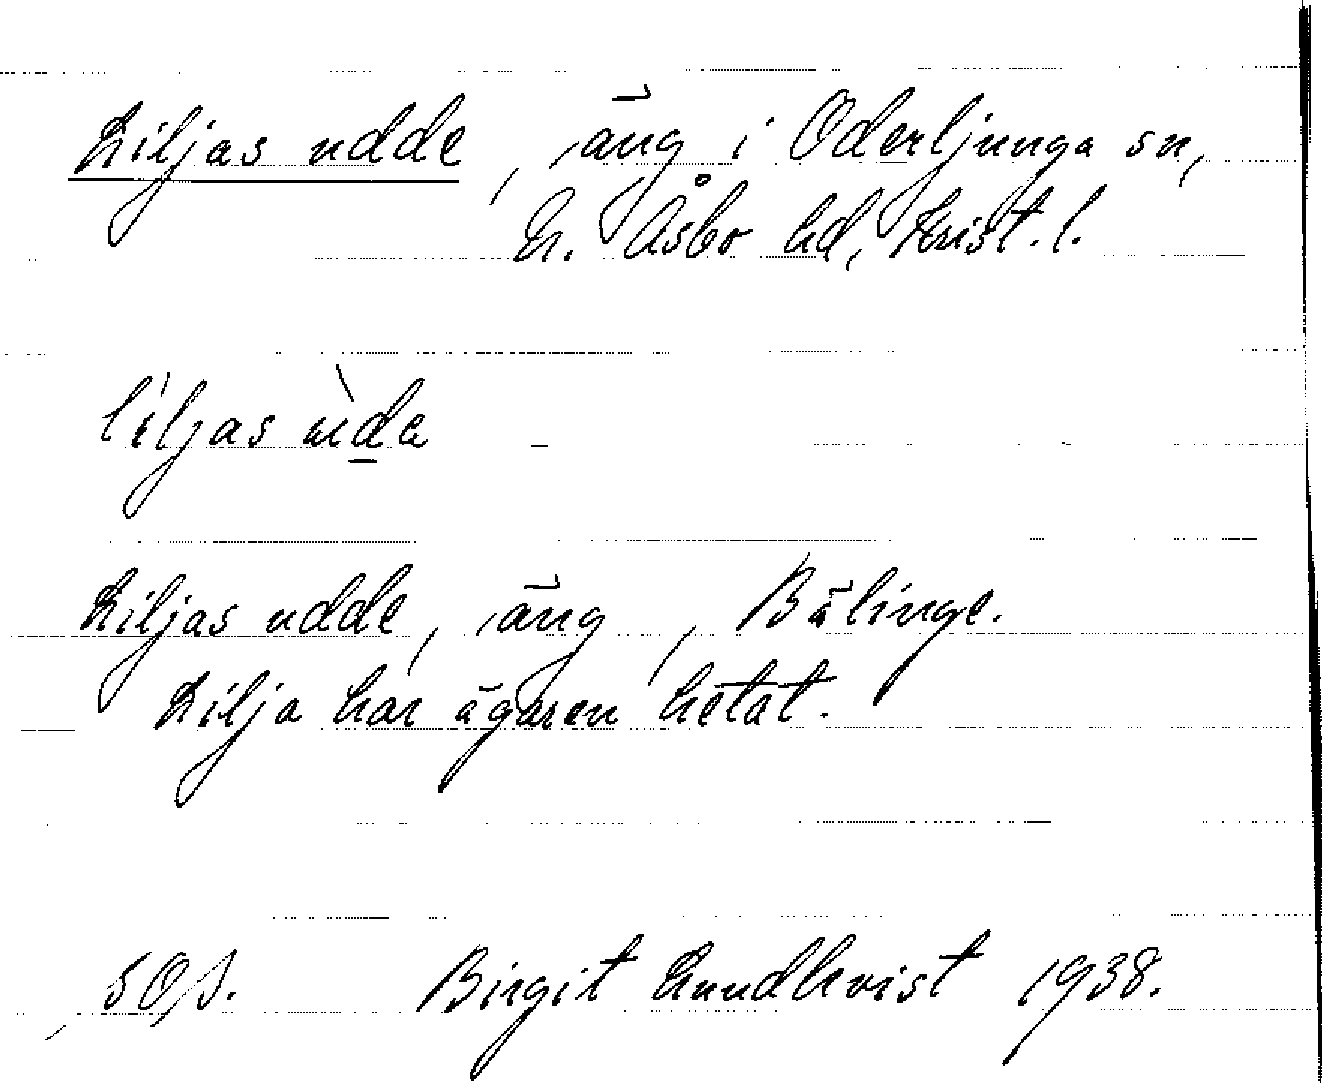 Liljas udde, äng i Oderljunga sn,
N. Åsbo hd, Krist. l.
líljas ùda
Liljas udde, äng, Bälinge.
Lilja har ägaren hetat.
SOfS. Birgit Lundkvist 1938.